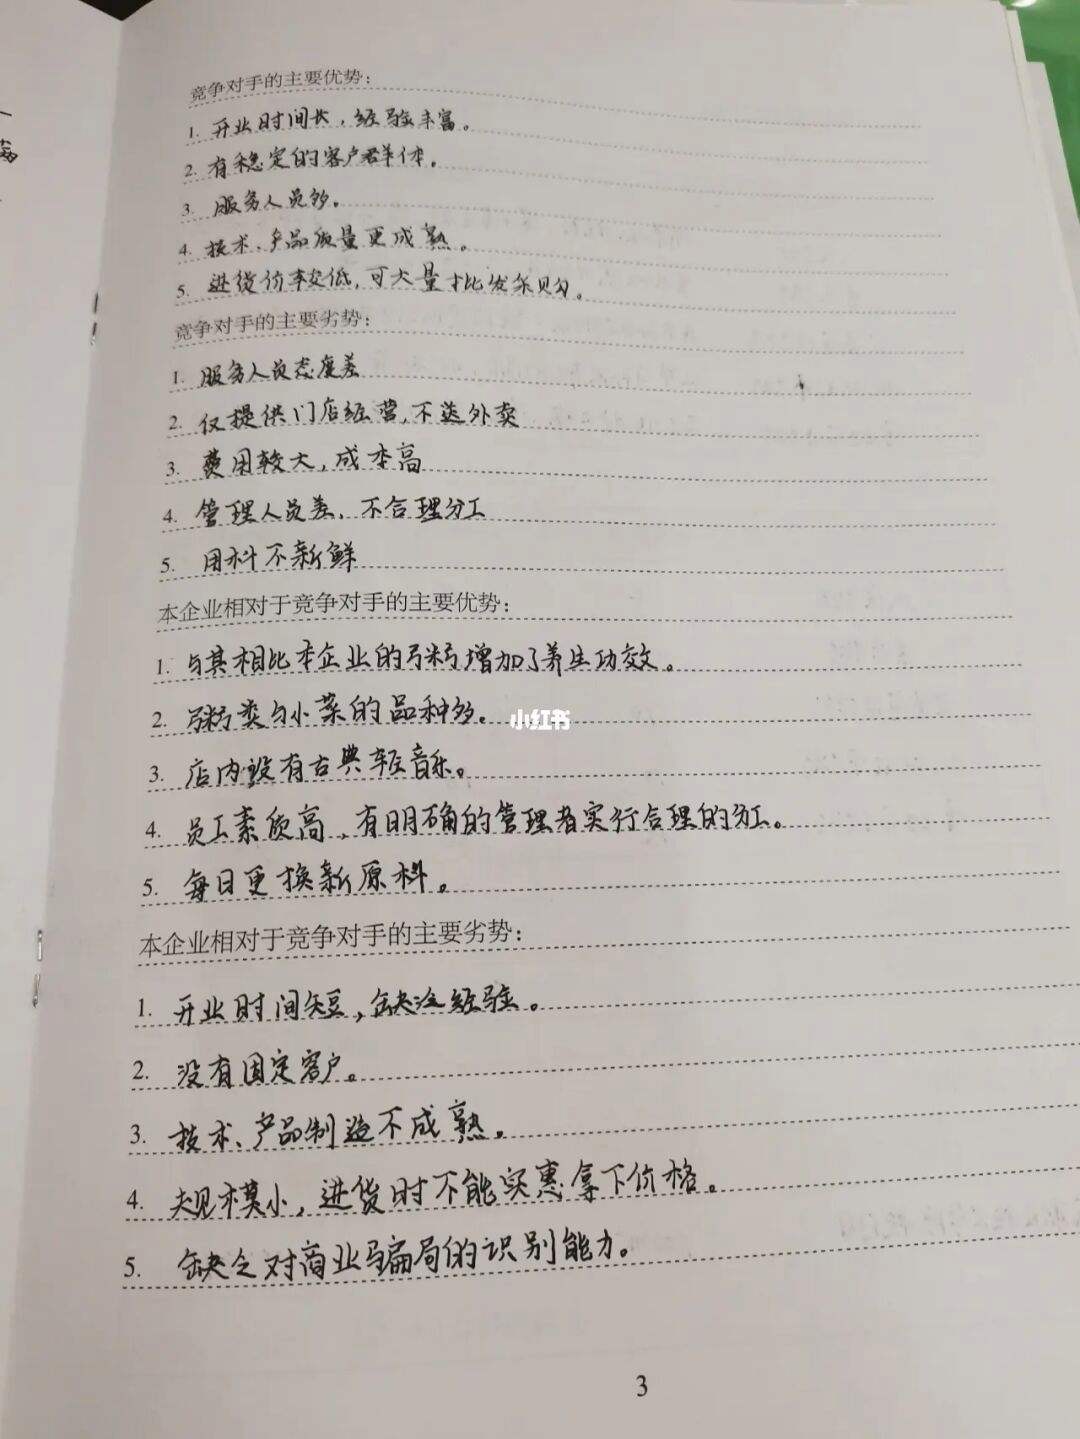 竞争对手的主要优势：
1. 开业时间长，经验丰富。
2. 有稳定的客户群体。
3. 服务人员多。
4. 技术、产品质量更成熟。
5. 进货价较低，可大量批发采购。
竞争对手的主要劣势：
1. 服务人员态度差
2. 仅提供门店经营，不送外卖
3. 费用较大，成本高
4. 管理人员差，不合理分工
5. 用料不新鲜
本企业相对于竞争对手的主要优势：
1. 与其相比本企业的粥增加了养生功效。
2. 粥类与小菜的品种多。
小红书
3. 店内设有古典轻音乐。
4. 员工素质高，有明确的管理者实行合理的分工。
5. 每日更换新原料。
本企业相对于竞争对手的主要劣势：
1. 开业时间短，缺泛经验。
2. 没有固定客户。
3. 技术、产品制造不成熟。
4. 规模小，进货时不能实惠拿下价格。
5. 缺乏对商业骗局的识别能力。
3